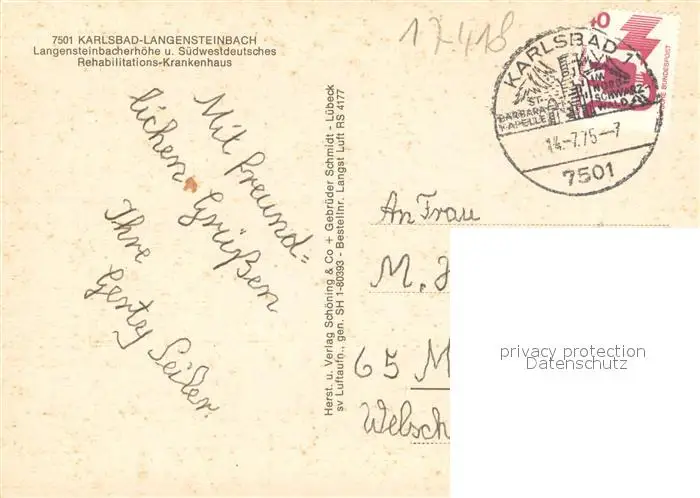 7501 KARLSBAD-LANGENSTEINBACH
Langensteinbacherhöhe u. Südwestdeutsches
Rehabilitations-Krankenhaus
17418
Mit freund=
lichen Grüßen
Ihre
Gerty Seiler.
Herst. u. Verlag Schöning & Co + Gebrüder Schmidt - Lübeck
sv Luftaufn., gen. SH 1-80393 - Bestellnr. Langst Luft RS 4177
KARLSBAD 1
ST.
BARBARA
KAPELLE
IM
NORD-
SCHWARZ
WALD
14.-7.75-7
7501
40
DEUTSCHE BUNDESPOST
An Frau
M.
65 M
Welsch
privacy protection
Datenschutz